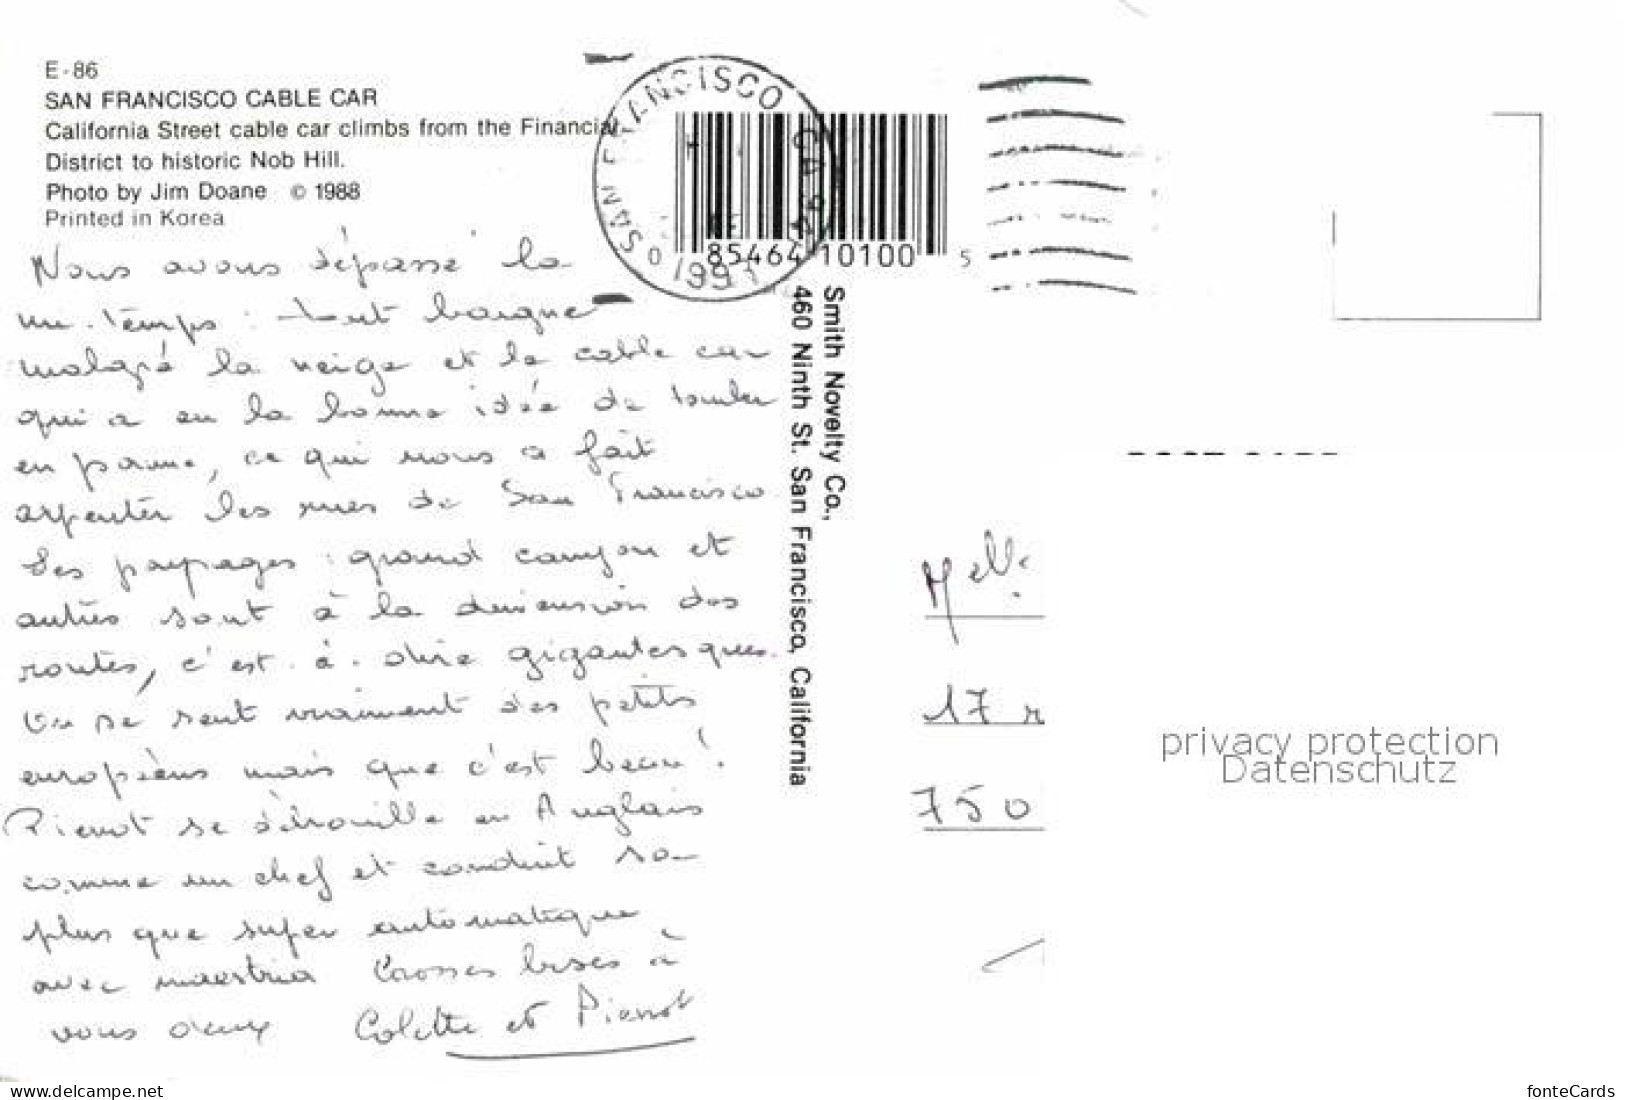 E-86
SAN FRANCISCO CABLE CAR
California Street cable car climbs from the Financial
District to historic Nob Hill.
Photo by Jim Doane © 1988
Printed in Korea
Nous avons dépassé la
mi-temps : tout baigne
malgré la neige et le cable car
qui a eu la bonne idée de tomber
en panne, ce qui nous a fait
arpenter les rues de San Francisco.
Les paysages : grand canyon et
autres sont à la dimension des
routes, c'est-à-dire gigantesques.
On se sent vraiment des petits
européens mais que c'est beau !
Pierrot se débrouille en Anglais
comme un chef et conduit sa
plus que super automatique
avec maestria Grosses bises à
vous deux Colette et Pierrot
SAN FRANCISCO CA
1991
0 85464 10100 5
Smith Novelty Co.,
460 Ninth St. San Francisco, California
Melle
17 r
750
privacy protection
Datenschutz
www.delcampe.net
fonteCards